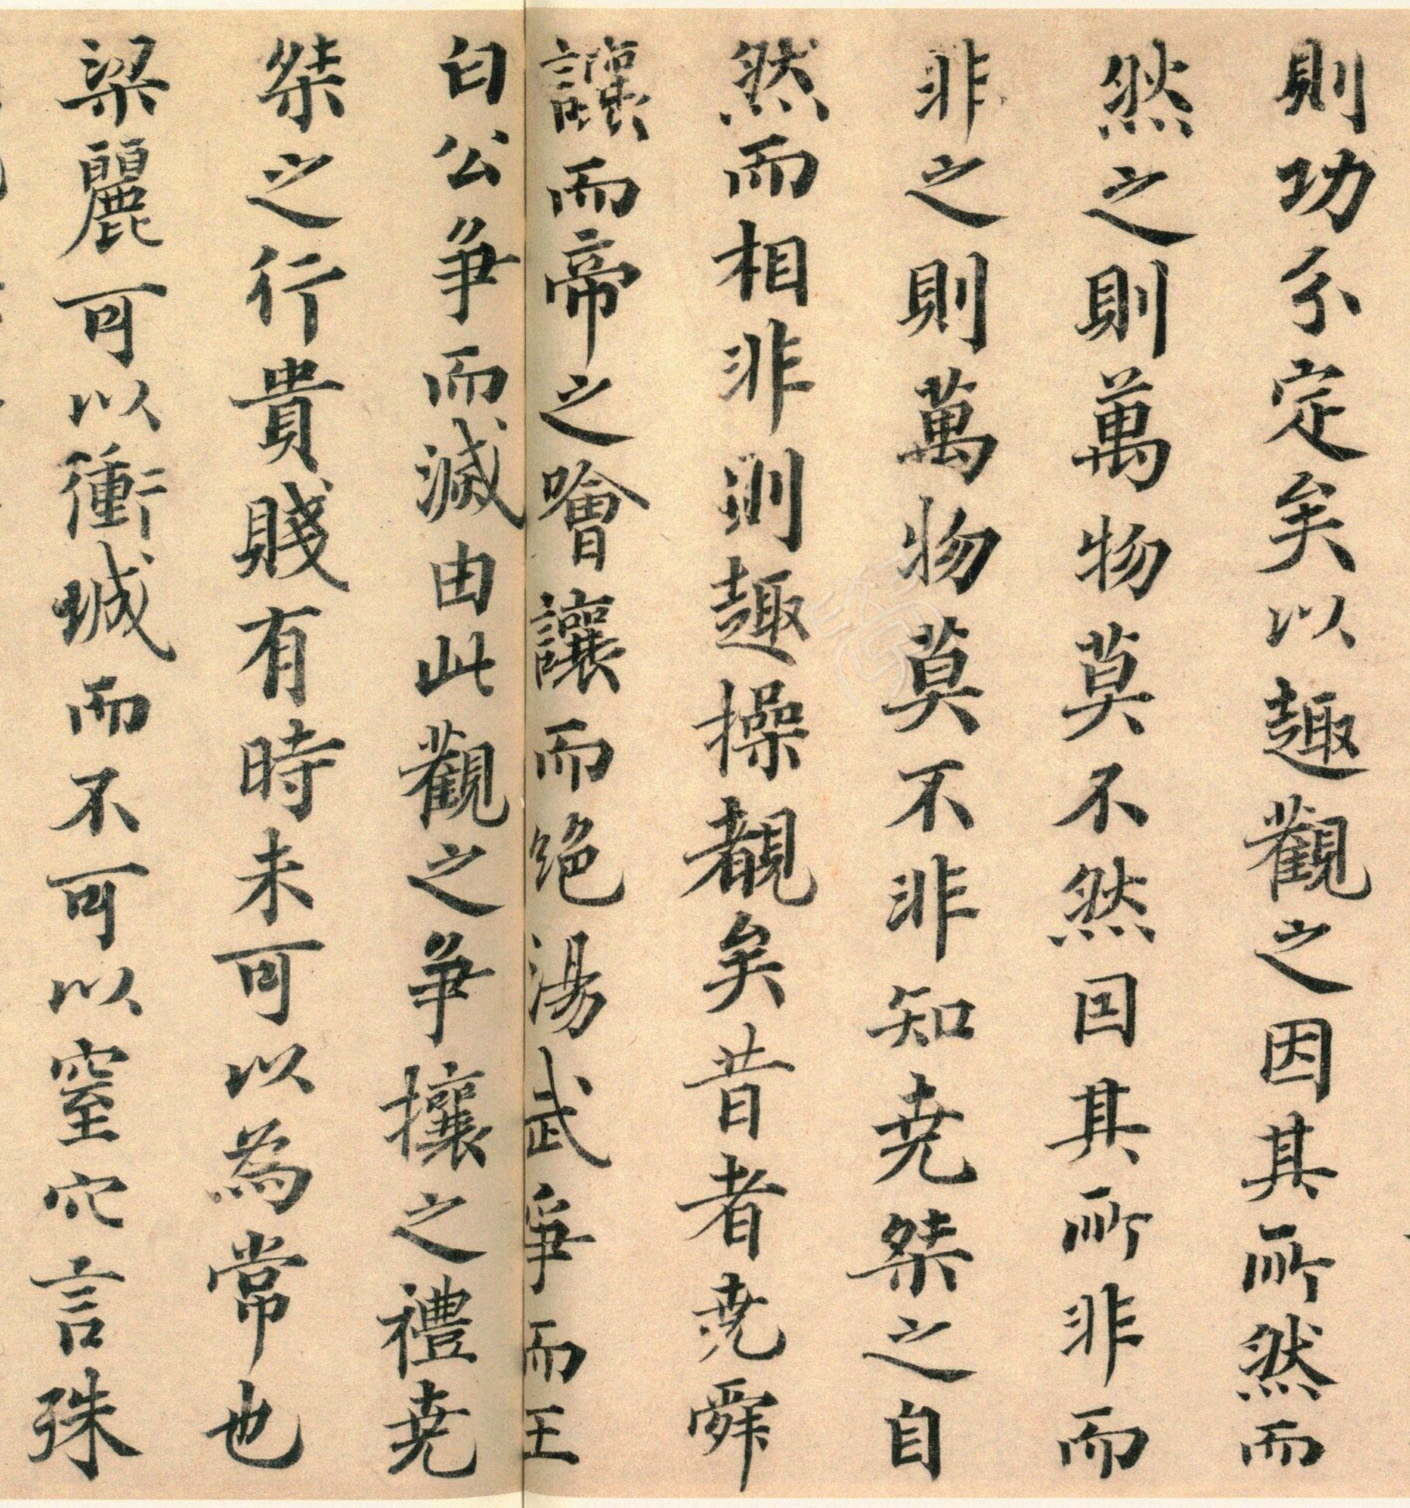 則功分定矣以趣觀之因其所然而
然之則萬物莫不然因其所非而
非之則萬物莫不非知堯桀之自
然而相非則趣操覩矣昔者堯舜
讓而帝之噲讓而絶湯武爭而王
白公爭而滅由此觀之爭攘之禮堯
桀之行貴賤有時未可以為常也
梁麗可以衝城而不可以窒穴言殊